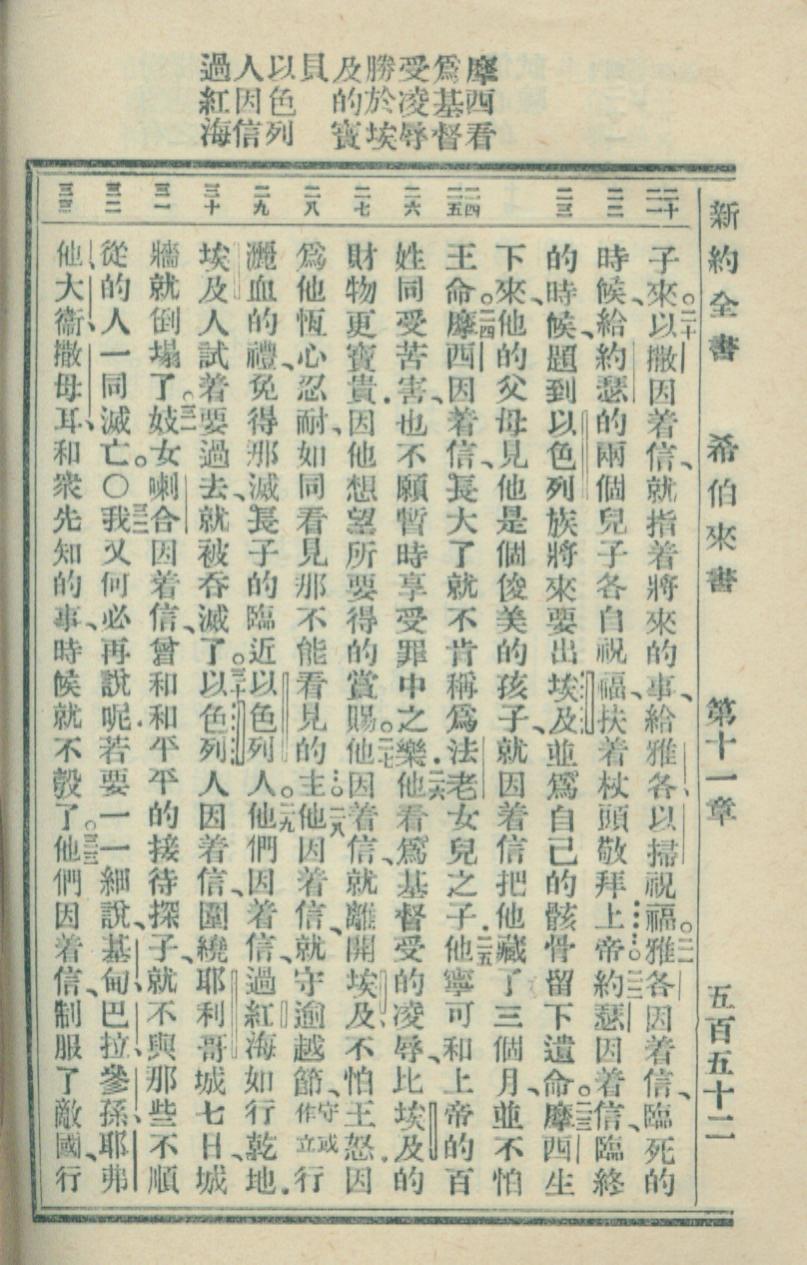 摩西看
爲基督
受凌辱
勝於埃
及的寶
貝
以色列
人因信
過紅海
新約全書 希伯來書 第十一章 五百五十二
二十
二一
二二
二三
二四
二五
二六
二七
二八
二九
三十
三一
三二
三三
子來。二十以撒因着信、就指着將來的事、給雅各、以掃祝福。二一雅各因着信、臨死的
時候、給約瑟的兩個兒子各自祝福、扶着杖頭敬拜上帝。二二約瑟因着信、臨終
的時候、題到以色列族將來要出埃及、並爲自己的骸骨留下遺命。二三摩西生
下來、他的父母見他是個俊美的孩子、就因着信把他藏了三個月、並不怕
王命。二四摩西因着信、長大了就不肯稱爲法老女兒之子．二五他寧可和上帝的百
姓同受苦害、也不願暫時享受罪中之樂．二六他看爲基督受的凌辱、比埃及的
財物更寶貴．因他想望所要得的賞賜。二七他因着信、就離開埃及、不怕王怒．因
爲他恆心忍耐、如同看見那不能看見的主。二八他因着信、就守逾越節、守或作立行
灑血的禮、免得那滅長子的臨近以色列人。二九他們因着信、過紅海如行乾地．
埃及人試着要過去、就被吞滅了。三十以色列人因着信、圍繞耶利哥城七日、城
牆就倒塌了。三一妓女喇合因着信、曾和和平平的接待探子、就不與那些不順
從的人一同滅亡。〇三二我又何必再說呢．若要一一細說、基甸、巴拉、參孫、耶弗
他、大衞、撒母耳、和衆先知的事、時候就不彀了。三三他們因着信、制服了敵國、行